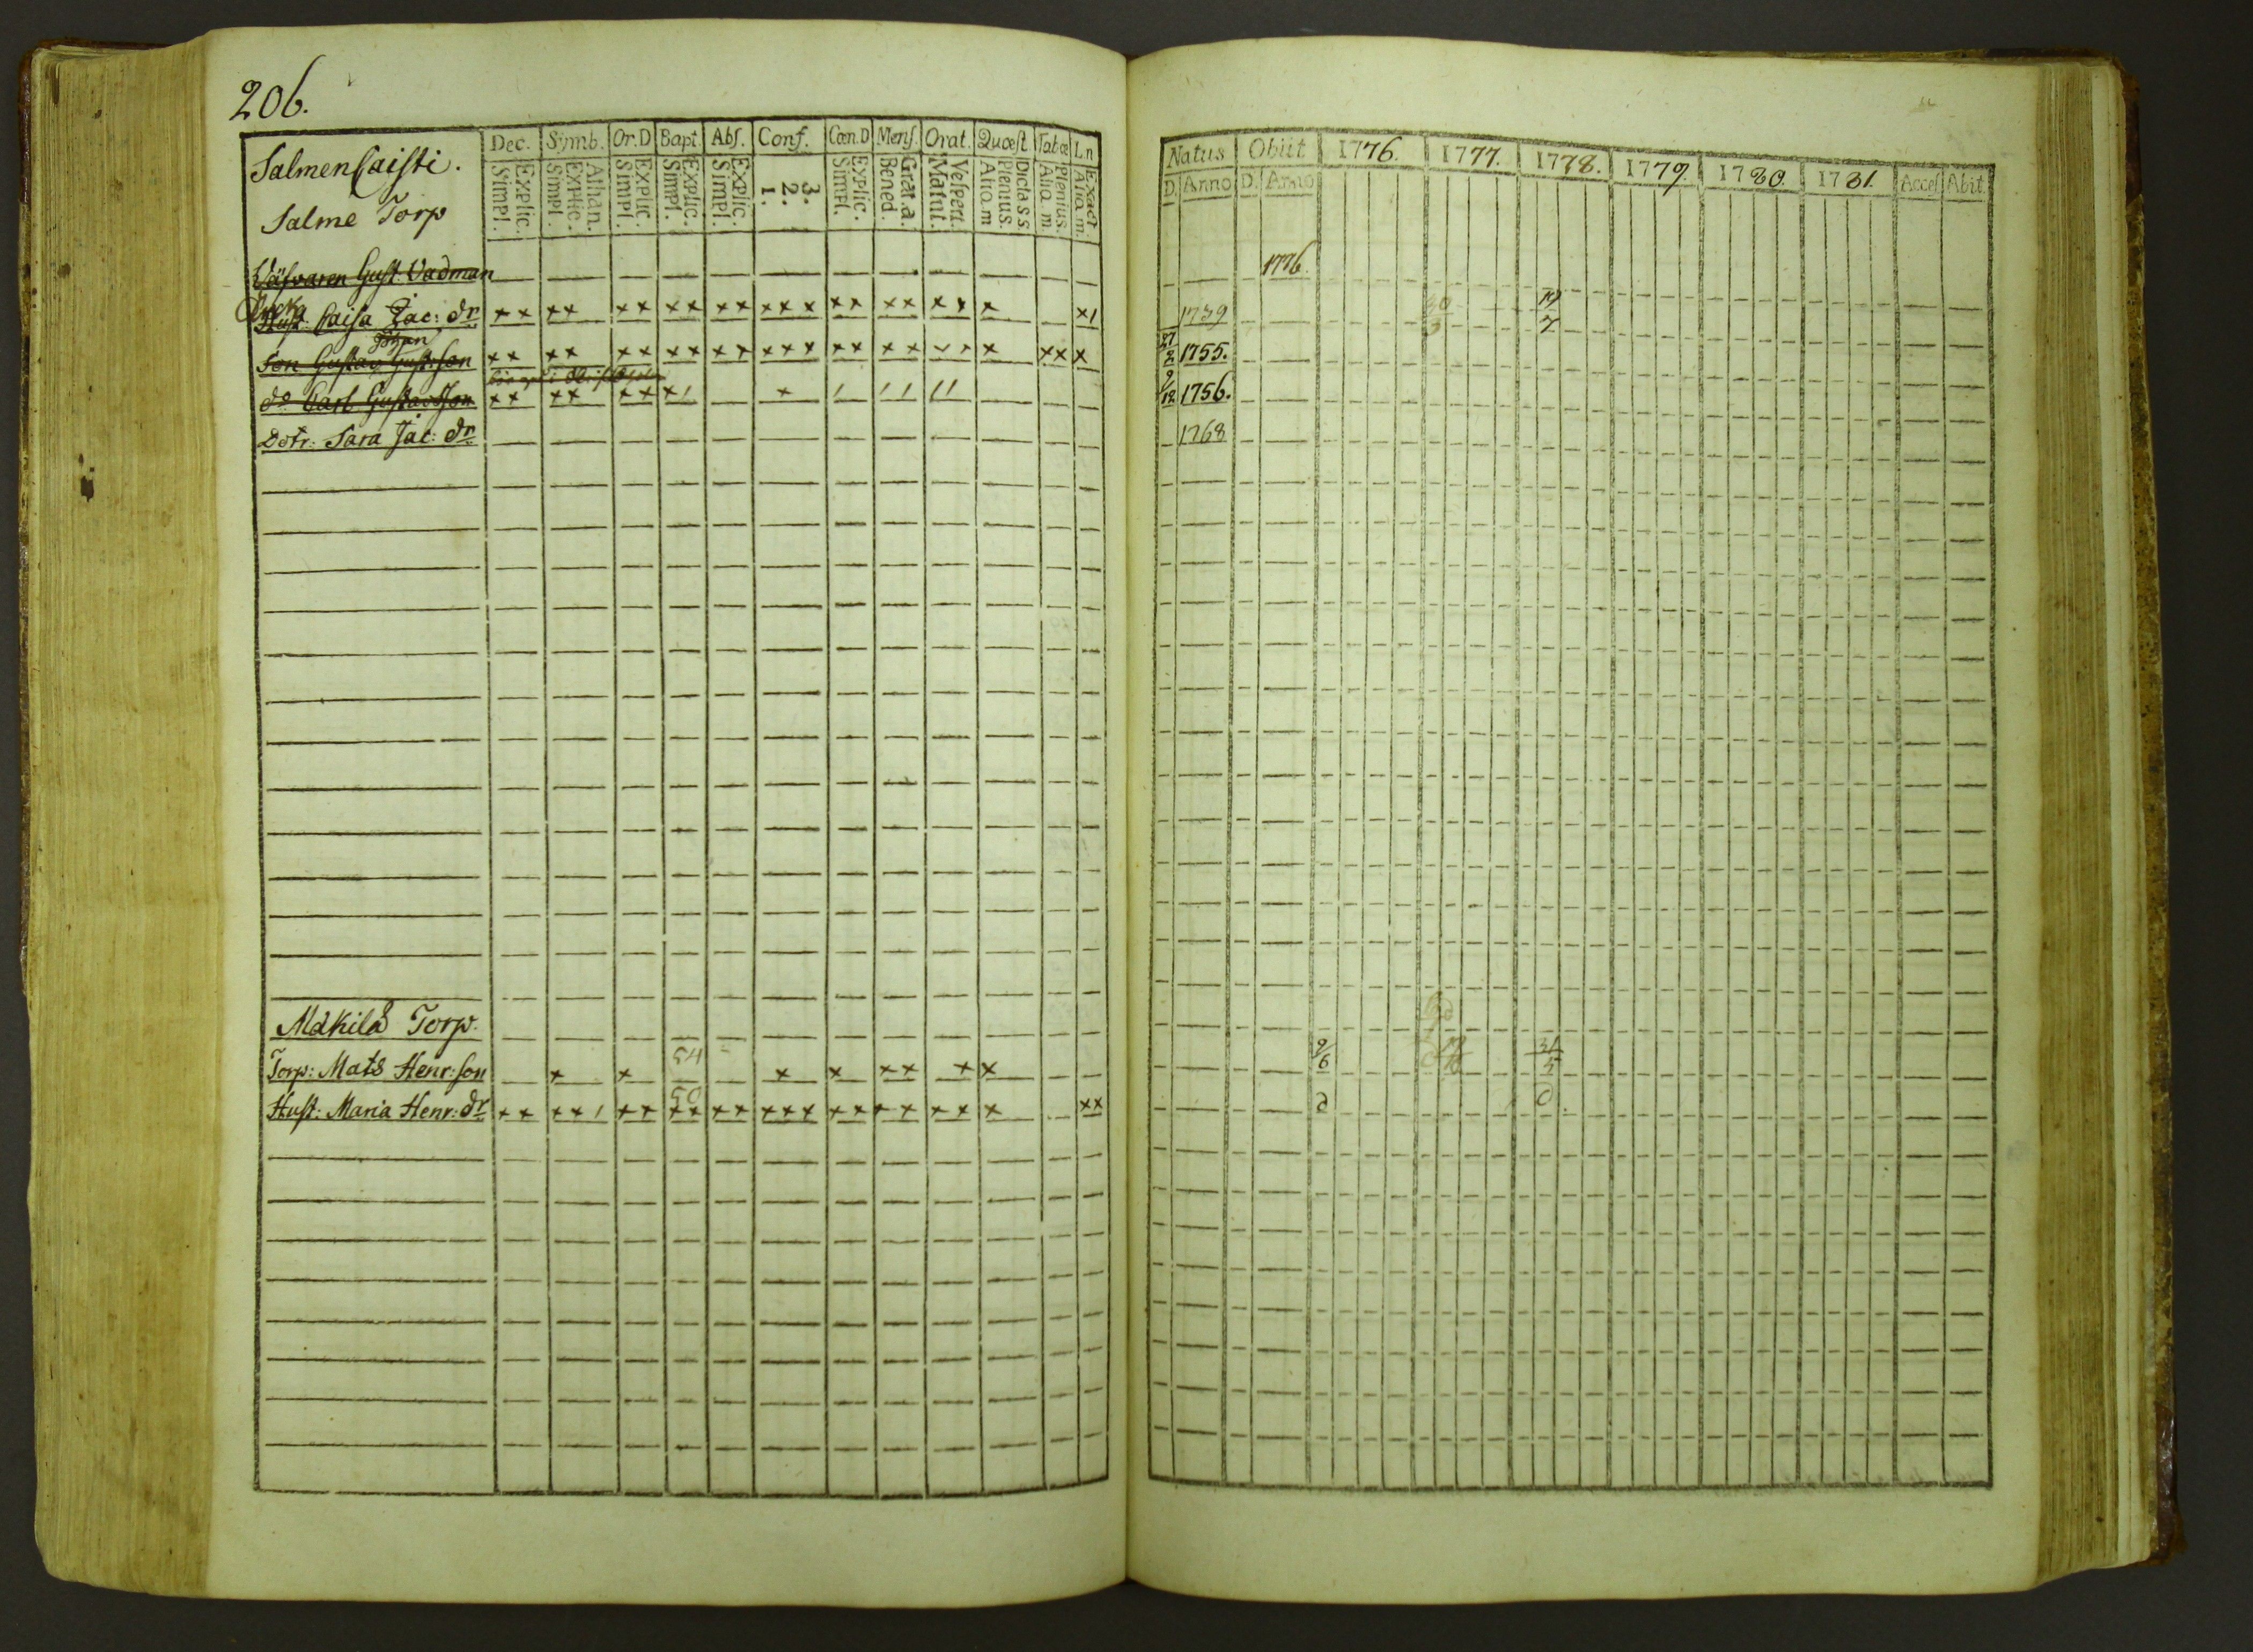 206.
Salmensaisti.
Salme Torp
Dec. Symb. Or. D Bapt. Abs. Conf. Cœn. D Mens. Orat. Quæst Tabæ L n
Explic. Simpl. Athan. Explic. Simpl. Explic. Simpl. Explic. Simpl. Explic. Simpl. 3. 2. 1. Explic. Simpl. Grat. a. Bened. Vespert. Matut. Dict. a s s. Plenius. Aliq. m Plenius. Aliq. m. Exact. Aliq. m.
Natus Obiit 1776. 1777. 1778. 1779. 1780. 1781. Acces Abit.
D. Anno D. Anno
Gust. Vadman 1776.
Enka
Hust. Caisa Jac: dr x x x x x x x x x x x x x x x x x x x x x1 1739 30 3 19 7
Johan
Son Gustav Gust: son x x x x x x x x x x x x x x x x x x x x x x 27 2 1755.
do Carl Gustavsson x x x x x x x 1 x 1 1 1 1 1 9 12 1756.
Dotr: Sara Jac: dr 1768
Mäkilä Torp.
Torp: Mats Henr: son x x 54 x x x x x x 9 6 31 5
Hust: Maria Henr: dr x x x x 1 x x 50 x x x x x x x x x x x x x x x x d d